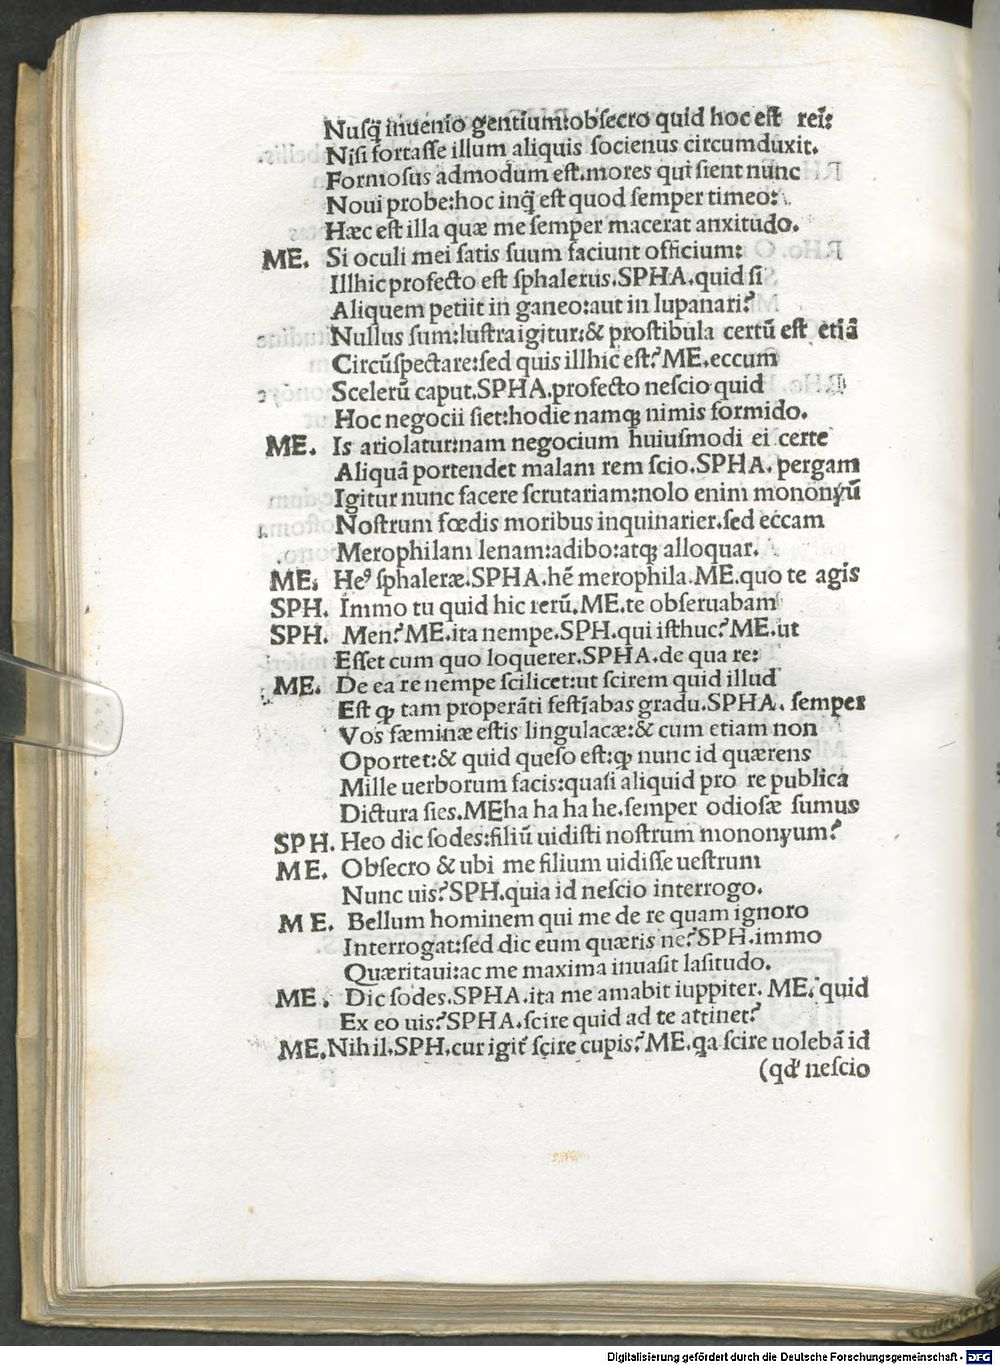 Nusq̃ inuenio gentium:obſecro quid hoc eſt rei:
Niſi fortaſſe illum aliquis ſocienus circumduxit.
Formoſus admodum eſt.mores qui ſient nunc
Noui probe:hoc inq̃ eſt quod ſemper timeo:
Hæc eſt illa quæ me ſemper macerat anxitudo.
ME. Si oculi mei ſatis ſuum faciunt officium:
Illhic profecto eſt ſphalerus.SPHA.quid ſi
Aliquem petiit in ganeo:aut in lupanari?
Nullus ſum:luſtra igitur:& proſtibula certũ eſt etiã
Circũſpectare:ſed quis illhic eſt?ME.eccum
Scelerũ caput.SPHA.profecto neſcio quid
Hoc negocii ſiet:hodie namqꝫ nimis formido.
ME. Is ariolatur:nam negocium huiuſmodi ei certe
Aliquã portendet malam rem ſcio.SPHA. pergam
Igitur nunc facere ſcrutariam:nolo enim mononyũ
Noſtrum fœdis moribus inquinarier.ſed eccam
Merophilam lenam:adibo:atqꝫ alloquar.
ME. Heꝰ ſphaleræ.SPHA.hẽ merophila.ME.quo te agis
SPH. Immo tu quid hic rerũ.ME.te obſeruabam
SPH. Men?ME.ita nempe.SPH.qui iſthuc?ME.ut
Eſſet cum quo loquerer.SPHA.de qua re:
ME. De ea re nempe ſcilicet:ut ſcirem quid illud
Eſt ꝙ tam properãti feſtĩabas gradu.SPHA. ſemper
Vos fæminæ eſtis lingulacæ:& cum etiam non
Oportet:& quid queſo eſt:ꝙ nunc id quærens
Mille uerborum facis:quaſi aliquid pro re publica
Dictura ſies.MEha ha ha he.ſemper odioſæ ſumus
SPH. Heo dic ſodes:filiũ uidiſti noſtrum mononyum?
ME. Obſecro & ubi me filium uidiſſe ueſtrum
Nunc uis?SPH.quia id neſcio interrogo.
ME. Bellum hominem qui me de re quam ignoro
Interrogat:ſed dic eum quæris ne?SPH.immo
Quæritaui:ac me maxima inuaſit laſitudo.
ME. Dic ſodes.SPHA.ita me amabit iuppiter. ME. quid
Ex eo uis?SPHA.ſcire quid ad te attinet?
ME.Nihil.SPH.cur igit᷑ ſcire cupis?ME.qa ſcire uolebã id
(qd' neſcio
Digitalisierung gefördert durch die Deutsche Forschungsgemeinschaft - DFG